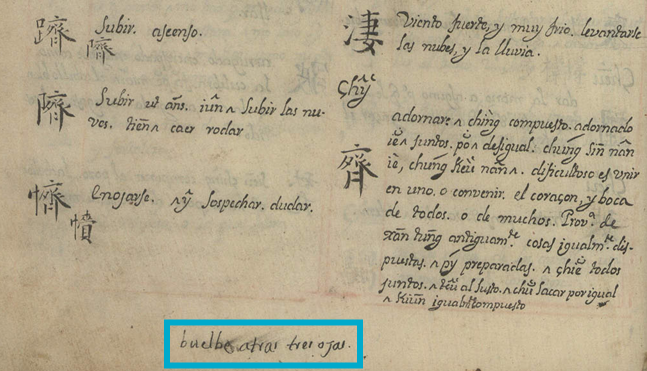 躋 Subir. ascenso.
隮
隮 Subir ut ans. iûn ʌ Subir las nu-
ves. tiēn ʌ caer rodar
懠 enojarse. ʌ ŷ sospechar. dudar.
憤
凄 Viento fuerto, y muy frio. levantarse
las nubes, y la lluvia.
adornare ʌ ching compuesto. adornado
juntos. desigual.
齊 dificultoso es unir
en uno. o convenir. el coraçon, y boca
de todos. o de muchos. Prov.ᵃ de
xān tūng antiguamᵗᵉ. cosas igualmᵗᵉ dis-
puestas. ʌ pý preparadas. ʌ todos
juntos. al justo. sacar por igual
compuesto
buelbe atras tres ojas.